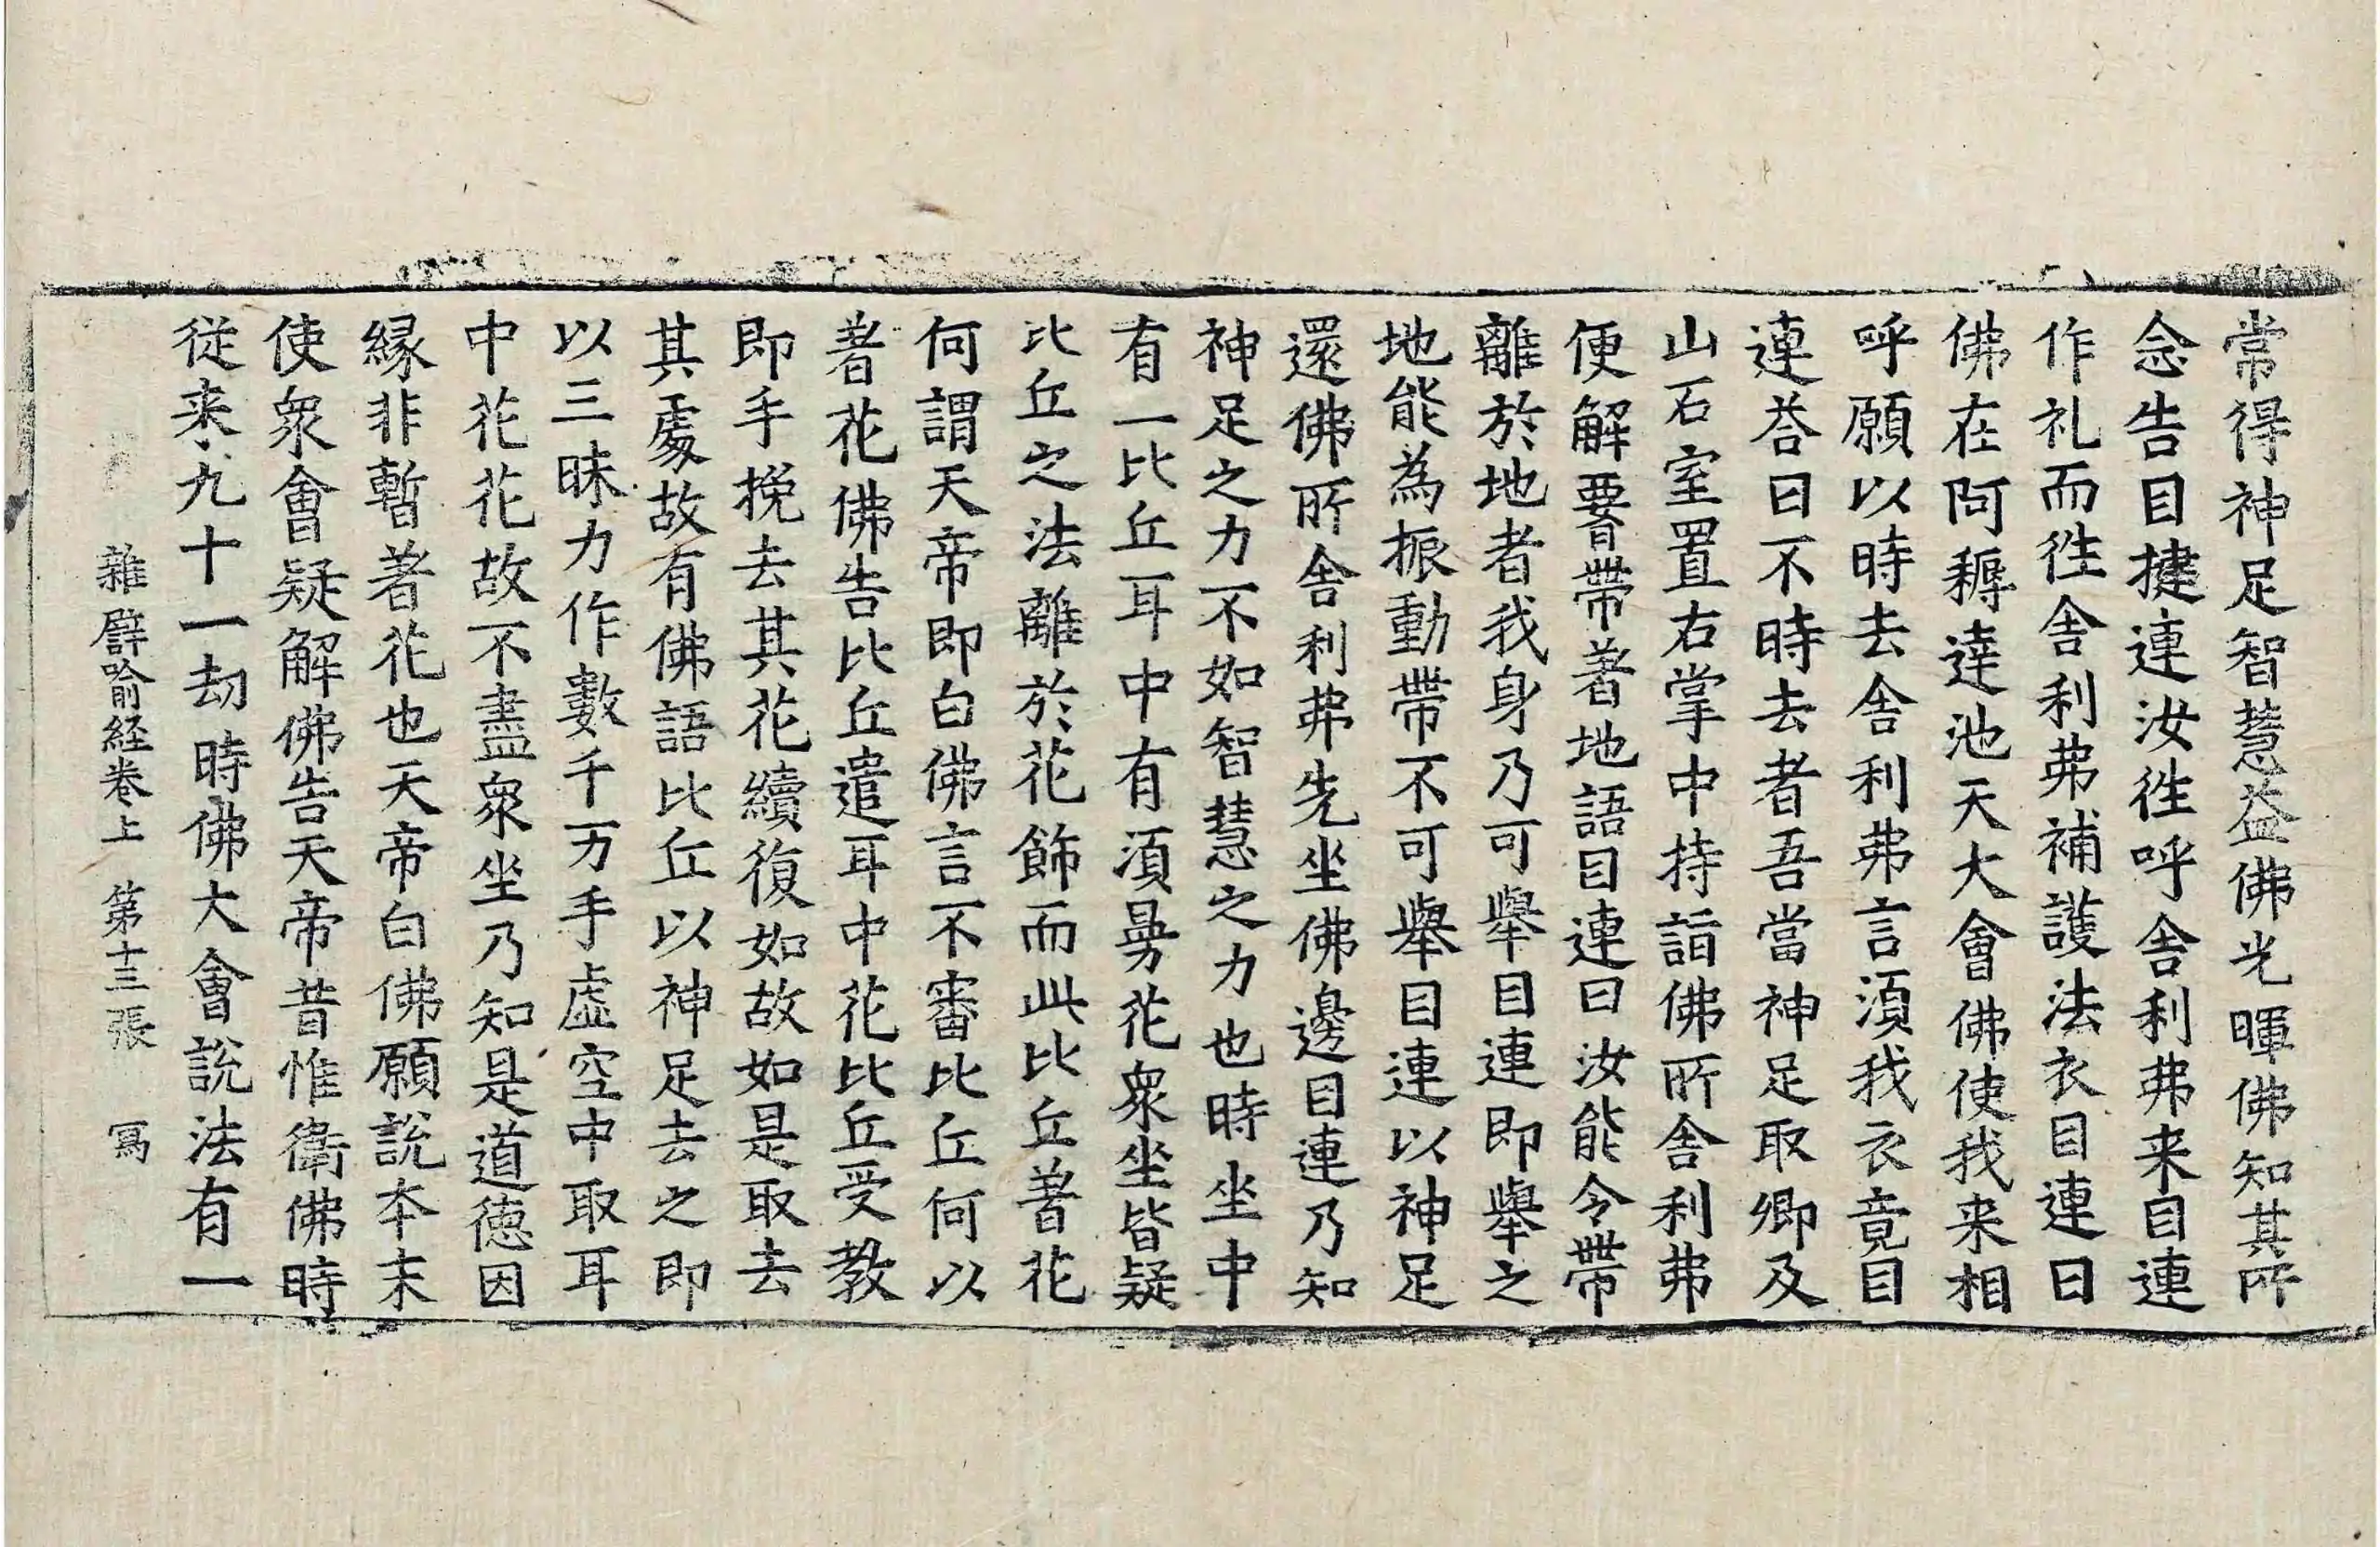 常得神足智慧益佛光暉佛知其所
念告目揵連汝徃呼舎利弗来目連
作礼而徃舎利弗補護法衣目連曰
佛在阿耨達池天大會佛使我来相
呼願以時去舎利弗言湏我衣竟目
連荅曰不時去者吾當神足取卿及
山石室置右掌中持詣佛所舎利弗
便解要帶著地語目連曰汝能令帶
離於地者我身乃可舉目連即舉之
地能為振動帶不可舉目連以神足
還佛所舎利弗先坐佛邊目連乃知
神足之力不如智慧之力也時坐中
有一比丘耳中有湏曼花衆坐皆疑
比丘之法離於花飾而此比丘著花
何謂天帝即白佛言不審比丘何以
著花佛告比丘遣耳中花比丘受教
即手挽去其花續復如故如是取去
其處故有佛語比丘以神足去之即
以三昧力作數千万手虚空中取耳
中花花故不盡衆坐乃知是道德因
緣非暫著花也天帝白佛願說本末
使衆會疑解佛告天帝昔惟衛佛時
従来九十一劫時佛大會說法有一
雜譬喻経卷上　第十三張　寫